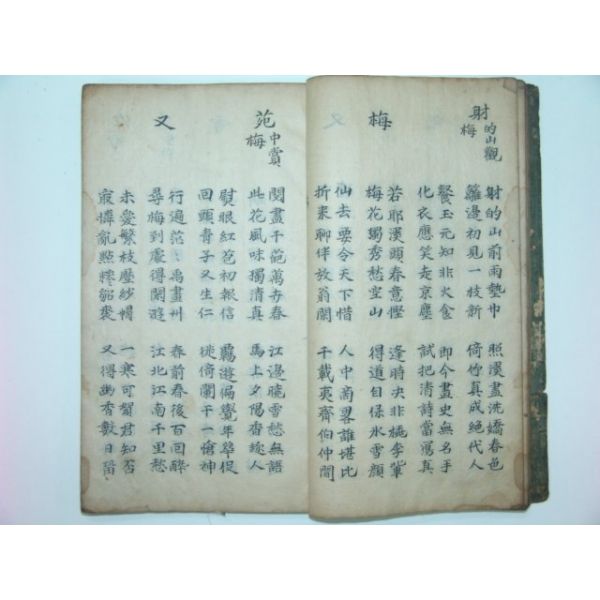 射的山觀梅
射的山前雨墊巾
籬邊初見一枝新
照溪盡洗嬌春色
倚竹真成絕代人
餐玉元知非火食
化衣應笑走京塵
即今畫史無名手
試把清詩當寫真
梅
若耶溪頭春意慳
梅花獨秀愁空山
逢時決非桃李輩
得道自保氷雪顔
仙去要令天下惜
折來聊伴放翁閑
人中商畧誰堪比
千載夷齊伯仲間
苑中賞梅
閱盡千葩萬卉春
此花風味獨清真
江邊曉雪愁無語
馬上夕陽香趂人
熨眼紅苞初報信
回頭青子又生仁
羈遊偏覺年華促
徙倚闌干一愴神
又
行遍茫〻禹畫州
尋梅到處得閑遊
春前春後百回醉
江北江南千里愁
未愛繁枝壓紗帽
㝡憐亂點糝貂裘
一寒可賀君知否
又得幽香數日留